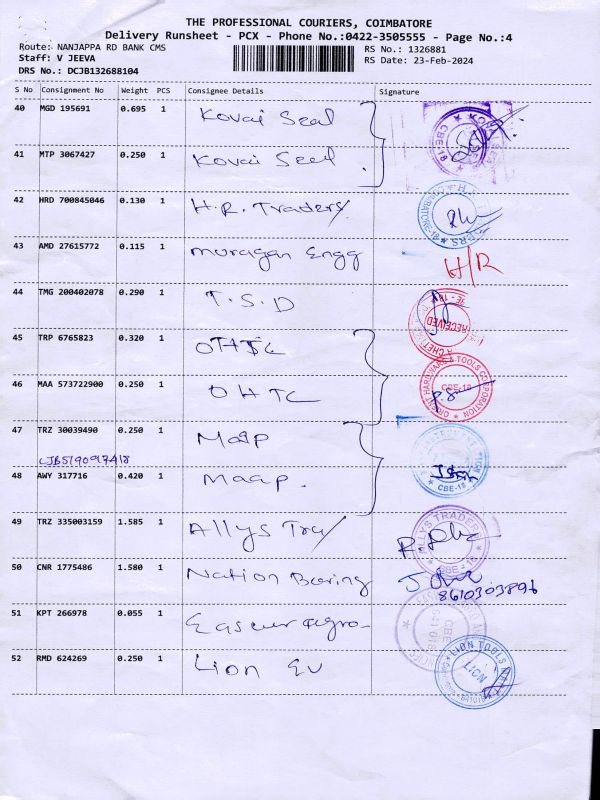 THE PROFESSIONAL COURIERS, COIMBATORE
Delivery Runsheet - PCX - Phone No.:0422-3505555 - Page No.:4
Route: NANJAPPA RD BANK CMS
RS No.: 1326881
Staff: V JEEVA
RS Date: 23-Feb-2024
DRS No.: DCJB132688104
S No Consignment No Weight PCS Consignee Details Signature
40 MGD 195691 0.695 1 Kovai Seal
41 MTP 3067427 0.250 1 Kovai Seal
42 HRD 700845046 0.130 1 H.R. Traders
43 AMD 27615772 0.115 1 murugan Engg H/R
44 TMG 200402078 0.290 1 T.S.D
RECEIVED
45 TRP 6765823 0.320 1 OHTC
46 MAA 573722900 0.250 1 OHTC
ORIENT HARDWARE & TOOLS CORPORATION
CBE-18
47 TRZ 30039490 0.250 1 Maap
CJB5190917418
48 AWY 317716 0.420 1 Maap.
CBE-18
49 TRZ 335003159 1.585 1 Allys Tra
ALLYS TRADERS
50 CNR 1775486 1.580 1 Nation Bearing
8610303896
51 KPT 266978 0.055 1
52 RMD 624269 0.250 1 Lion
LION TOOLS